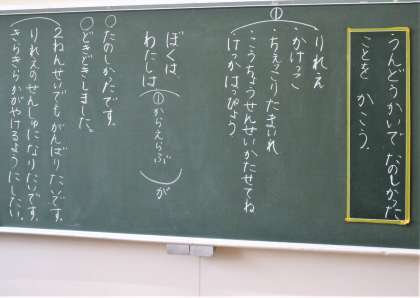 うんどうかいで たのしかった
ことを かこう。
①
りれえ
・かけっこ
・ちぇっこりたまいれ
・こうちょうせんせいかたせてね
・けっかはっぴょう
ぼくは
わたしは
①からえらぶ
が
○たのしかったです。
○どきどきしました。
2ねんせいでもがんばりたいです。
りれえのせんしゅになりたいです。
きらきらかがやけるようにしたい。